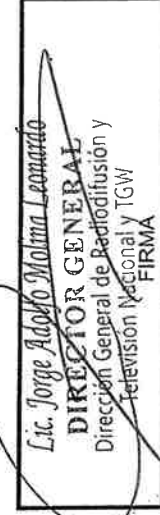 Lic. Jorge Adolfo Molina Leonardo
DIRECTOR GENERAL
Dirección General de Radiodifusión y
Televisión Nacional y TGW
FIRMA